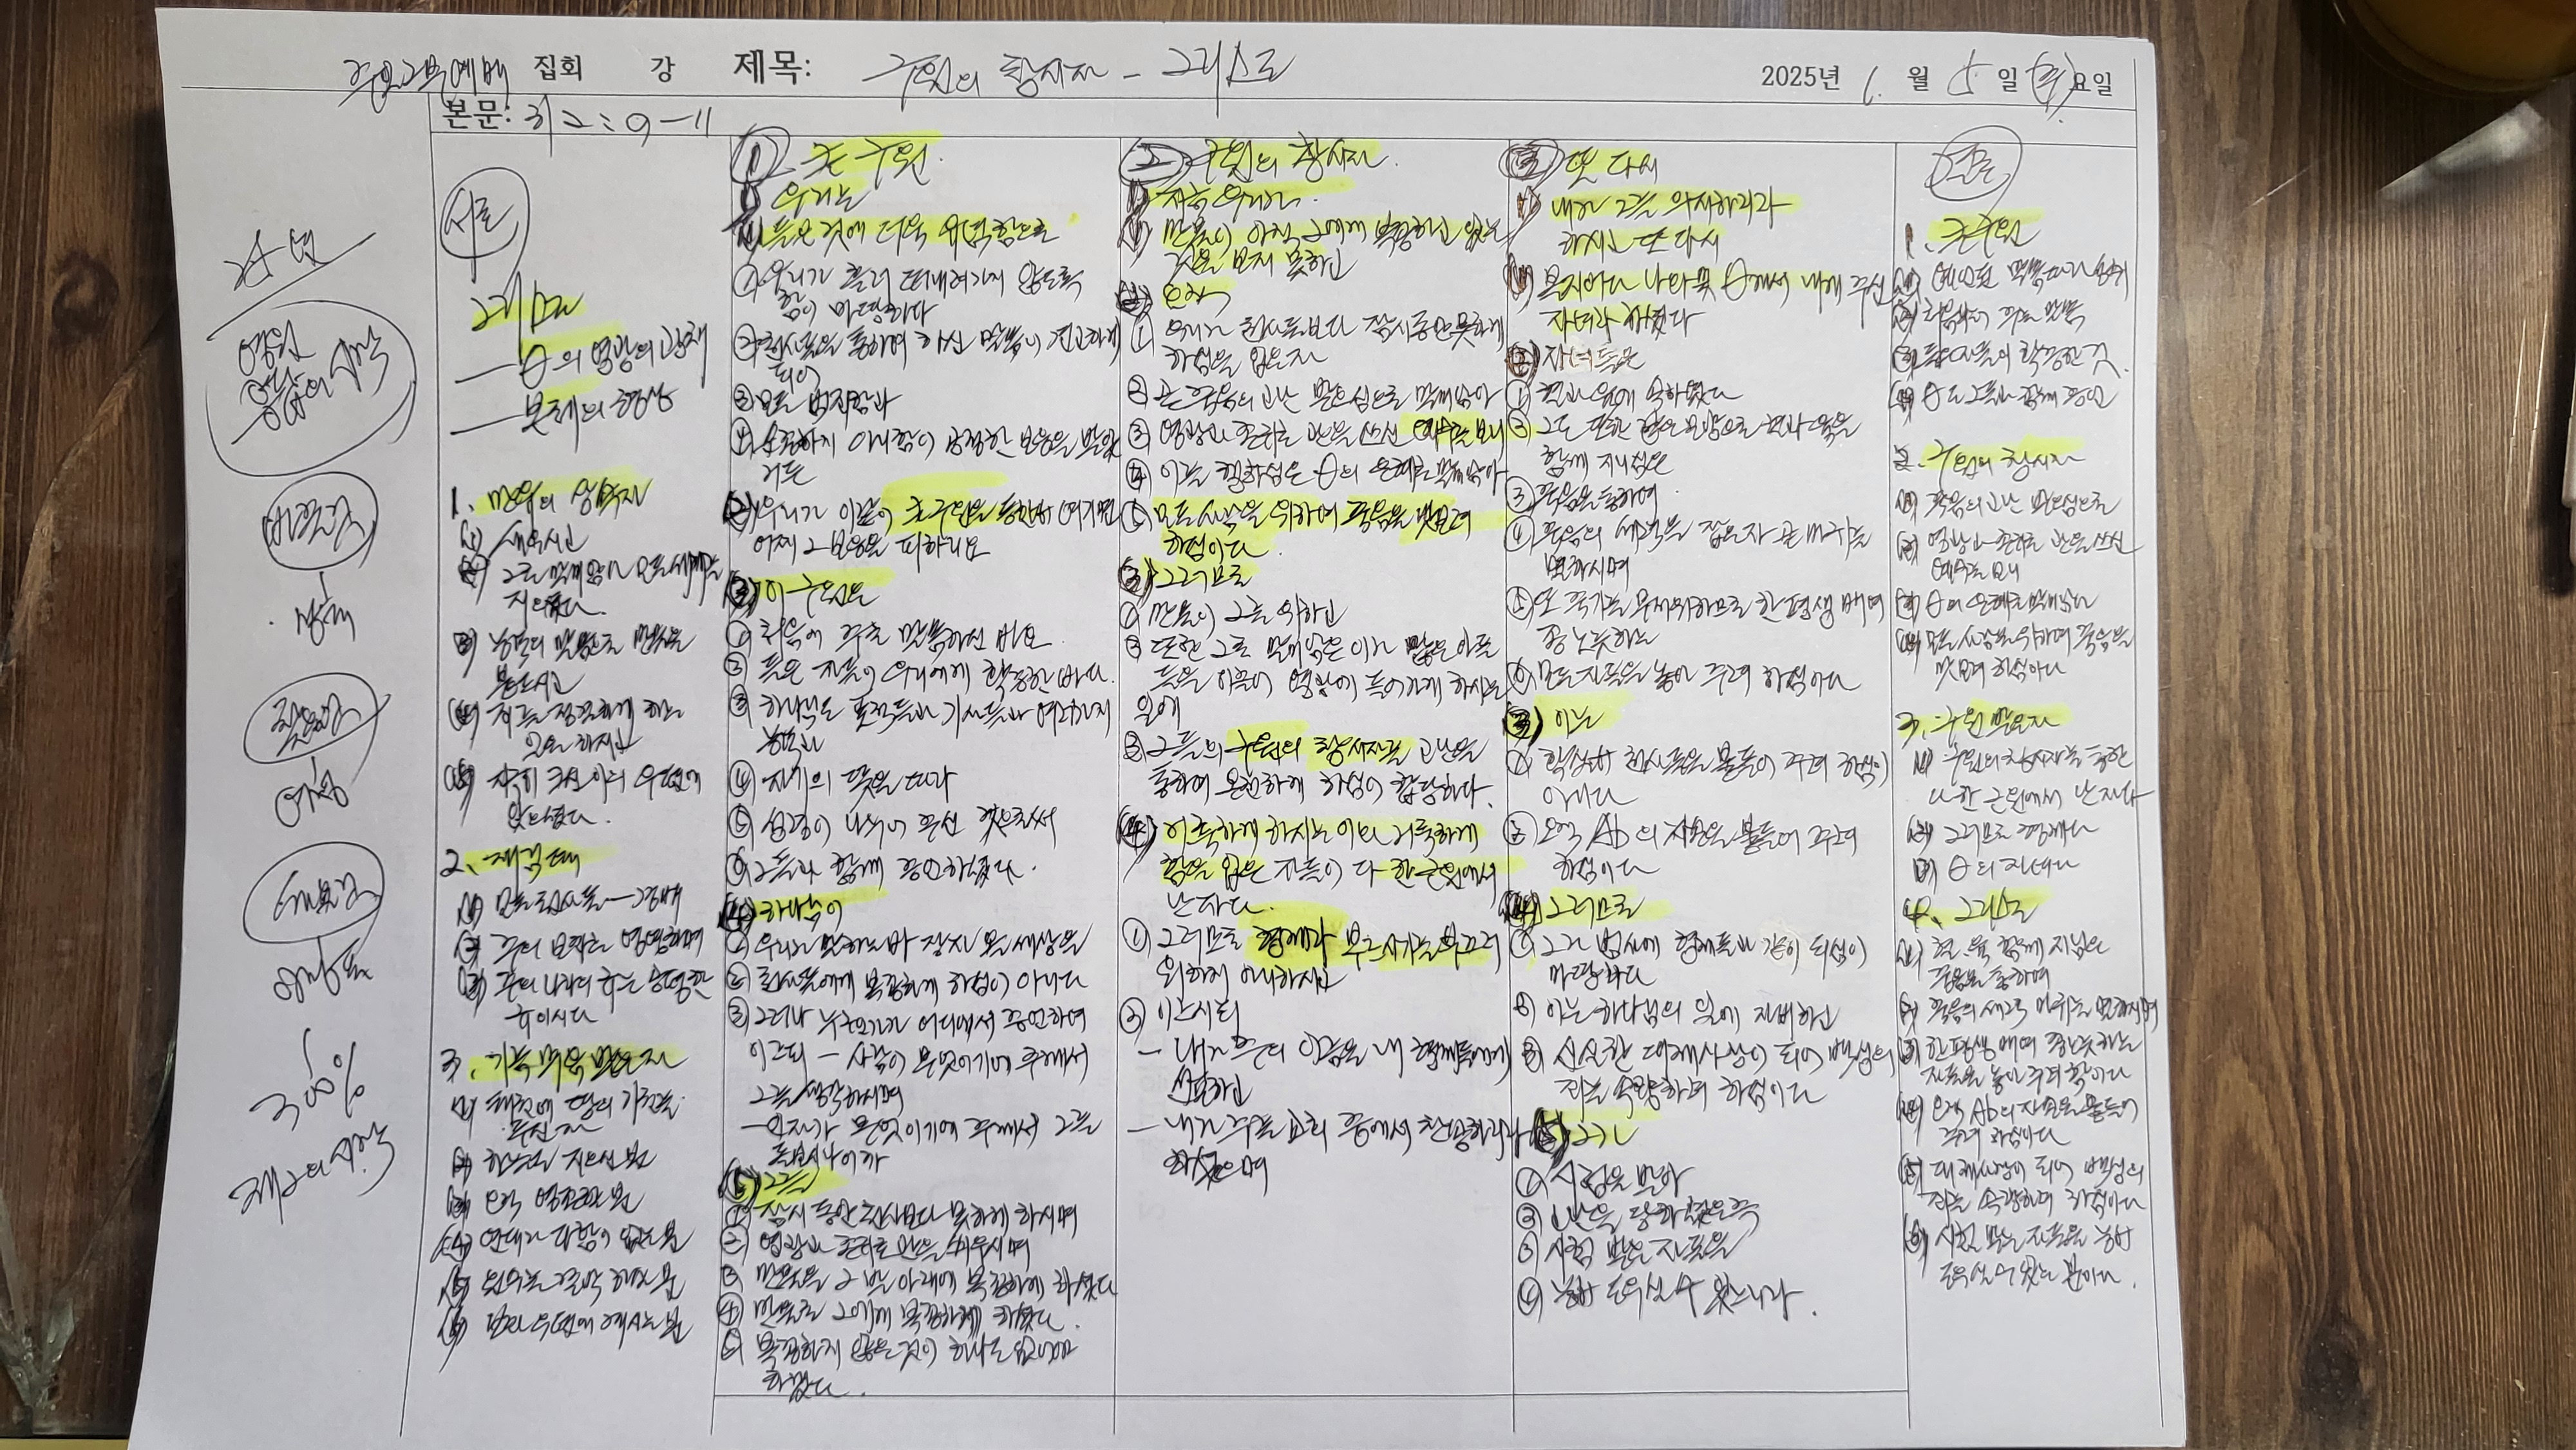 주일2부예배 집회 강 제목: 구원의 창시자 - 그리스도
2025년 1. 월 5 일 (주)요일
본문: 히2:9-11
영원
응답의 시작
300%
서론
그리스도
- θ의 영광의 광채
- 본체의 형상
1. 만유의 상속자
(1) 세우시고
(2) 그로 말미암아 모든 세계를
지으셨다.
(3) 능력의 말씀으로 만물을
붙드시고
(4) 죄를 정결하게 하는
일을 하시고
(5) 지극히 크신 이의 우편에
앉으셨다.
2.
(1) 모든 천사들 - 경배
(2) 주의 보좌는 영영하며
(3) 주의 나라의 규는 공평한
규이시다
3. 기름 부음 받은 자
(1) 태초에 땅의 기초를
두신 자
(2) 하늘도 지으신 분
(3) 오직 영존할 분
(4) 연대가 다함이 없는 분
(6) 보좌 우편에 계시는 분
① 큰 구원.
1) 우리는
(1) 들은 것에 더욱 유념함으로
① 우리가 흘러 떠내려가지 않도록
함이 마땅하다
② 천사들을 통하여 하신 말씀이 견고하게
되어
③ 모든 범죄함과
④ 순종하지 아니함이 공정한 보응을 받았
거든
(2) 우리가 이같이 큰 구원을 등한히 여기면
어찌 그 보응을 피하리요
(3) 이 구원은
① 처음에 주로 말씀하신 바요
② 들은 자들이 우리에게 확증한 바다.
③ 하나님도 표적들과 기사들과 여러가지
능력과
④ 자기의 뜻을 따라
⑤ 성령이 나누어 주신 것으로써
⑥ 그들과 함께 증언하셨다.
(4) 하나님이
① 우리가 말하는바 장차 올 세상을
② 천사들에게 복종하게 하심이 아니다
③ 그러나 누구인가가 어디에서 증언하여
이르되 - 사람이 무엇이기에 주께서
그를 생각하시며
- 인자가 무엇이기에 주께서 그를
돌보시나이까
(5) 그를
① 잠시 동안 천사보다 못하게 하시며
② 영광과 존귀로 관을 씌우시며
③ 만물을 그 발 아래에 복종하게 하셨다
④ 만물로 그에게 복종하게 하셨다.
⑤ 복종하지 않은 것이 하나도 없어야
하겠다.
② 구원의 창시자.
1) 지금 우리가.
(1) 만물이 아직 그에게 복종하고 있는
것을 보지 못하고
(2) 오직
① 우리가 천사들보다 잠시동안 못하게
하심을 입은자
② 곧 죽음의 고난 받으심으로 말미암아
③ 영광과 존귀로 관을 쓰신 예수를 보니
④ 이를 행하심은 θ의 은혜로 말미암아
⑤ 모든 사람을 위하여 죽음을 맛보려
하심이다.
(3) 그러므로
① 만물이 그를 위하고
② 또한 그로 말미암은 이가 많은 아들
들을 이끌어 영광에 들어가게 하시는
일에
③ 그들의 구원의 창시자를 고난을
통하여 온전하게 하심이 합당하다.
(4) 거룩하게 하시는 이와 거룩하게
함을 입은 자들이 다 한 근원에서
난지라.
① 그러므로 형제라 부르시기를 부끄러
워하지 아니하시고
② 이르시되
- 내가 주의 이름을 내 형제들에게
선포하고
- 내가 주를 교회 중에서 찬송하리라
하셨으며
③ 또 다시
1) 내가 그를 의지하리라
하시고 또 다시
(1) 볼지어다 나와 및 θ께서 내게 주신
자녀라 하셨다
(2) 자녀들은
① 혈과 육에 속하였다
② 그도 또한 같은 모양으로 혈과 육을
함께 지니심은
③ 죽음을 통하여
④ 죽음의 세력을 잡은자 곧 마귀를
멸하시며
⑤ 또 죽기를 무서워하므로 한평생 매여
종 노릇하는
⑥ 모든 자들을 놓아 주려 하심이다
(3) 이는
① 확실히 천사들을 붙들어 주려 하심이
아니다
② 오직 Ab의 자손을 붙들어 주려
하심이다
(4) 그러므로
① 그가 범사에 형제들과 같이 되심이
마땅하다
② 이는 하나님의 일에 자비하고
③ 신실한 대제사장이 되어 백성의
죄를 속량하려 하심이다
(5) 그가
① 시험을 받아
② 고난을 당하셨은즉
③ 시험 받은 자들을
④ 능히 도우실 수 있느니라.
결론
1. 큰구원
(2) 처음에 주로 말씀
(3) 들은 자들의 확증한 것
(4) θ도 그들과 함께 증언
2. 구원의 창시자
(1) 죽음의 고난 받으심으로
(2) 영광과 존귀로 관을 쓰신
예수를 보니
(3) θ의 은혜로 말미암아
(4) 모든 사람을 위하여 죽음을
맛보려 하심이다
3. 구원 받은자
(1) 구원의 창시자를 통한
다 한 근원에서 난 자다
(2) 그러므로 형제다
(3) θ의 자녀다
4. 그리스도
(1) 혈, 육 함께 지님은
죽음을 통하여
(2) 죽음의 세력 마귀를 멸하시며
(3) 한평생 매여 종노릇하는
자들을 놓아 주려 함이다
(4) 오직 Ab의 자손을 붙들어
주려 하심이다
(5) 대제사장이 되어 백성의
죄를 속량하려 하심이다
(6) 시험 받는 자들을 능히
도우실 수 있는 분이다.